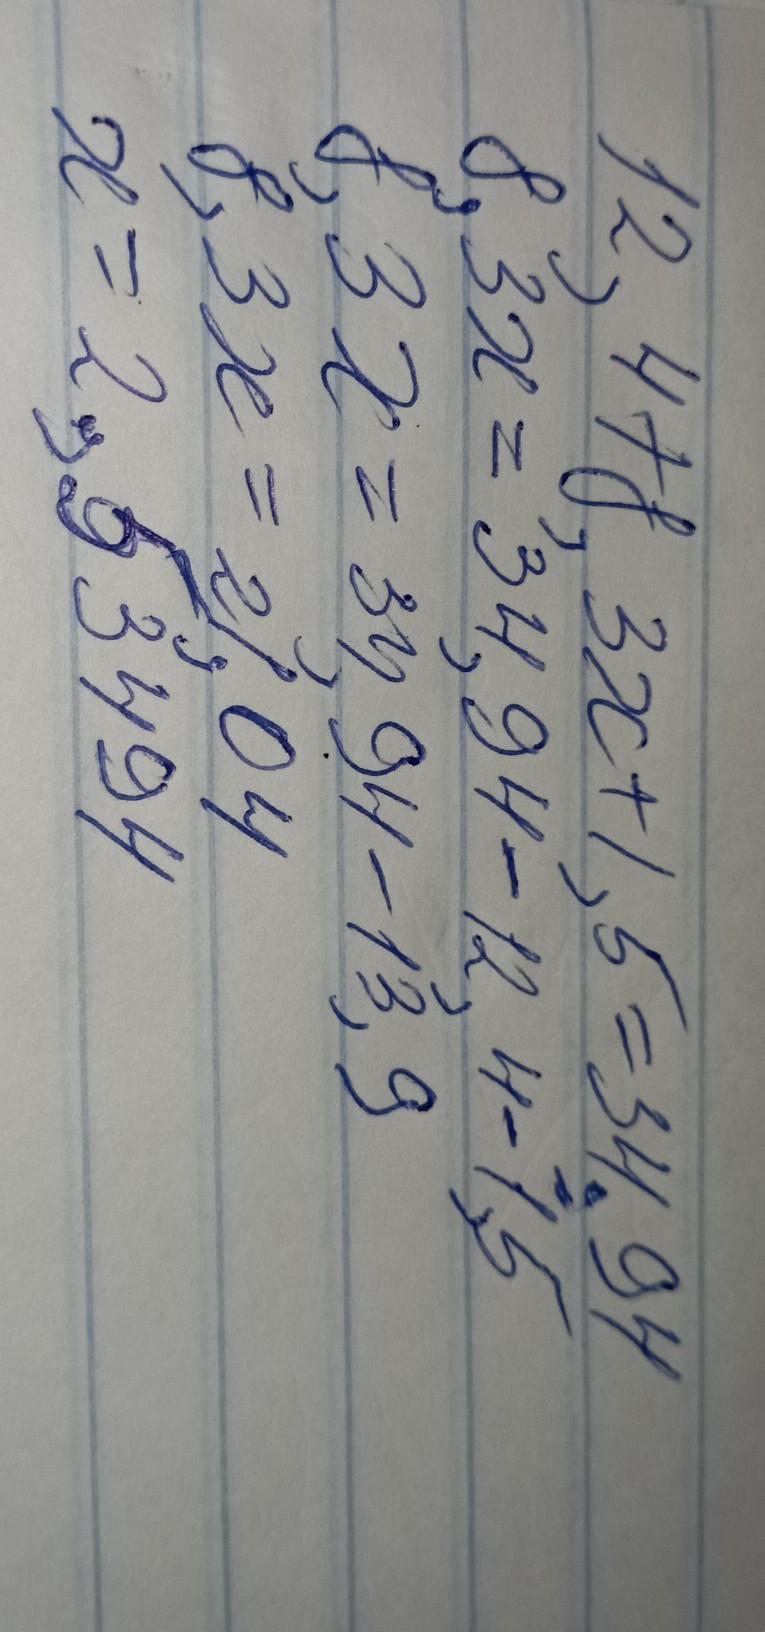 12,4+8,3x+1,5=34,94
8,3x=34,94-12,4-1,5
8,3x=34,94-13,9
8,3x=21,04
x=2,53494